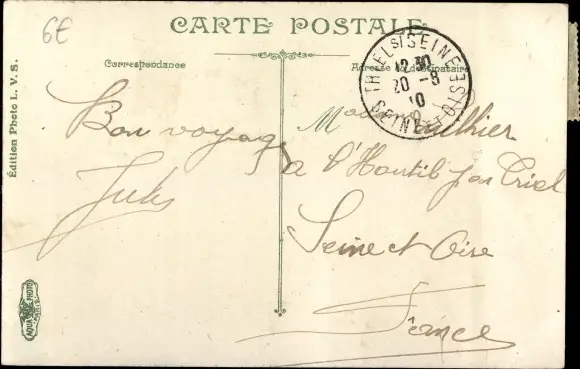 6€
CARTE POSTALE
Correspondance
Adresse du destinataire
Édition Photo L. V. S.
TRIEL S/ SEINE
12 30
20 -8
10
SEINE-ET-OISE
Bon voyage
Jules
à l'Hautil par Triel
Seine et Oise
France
AQUA PHOTO
PARIS